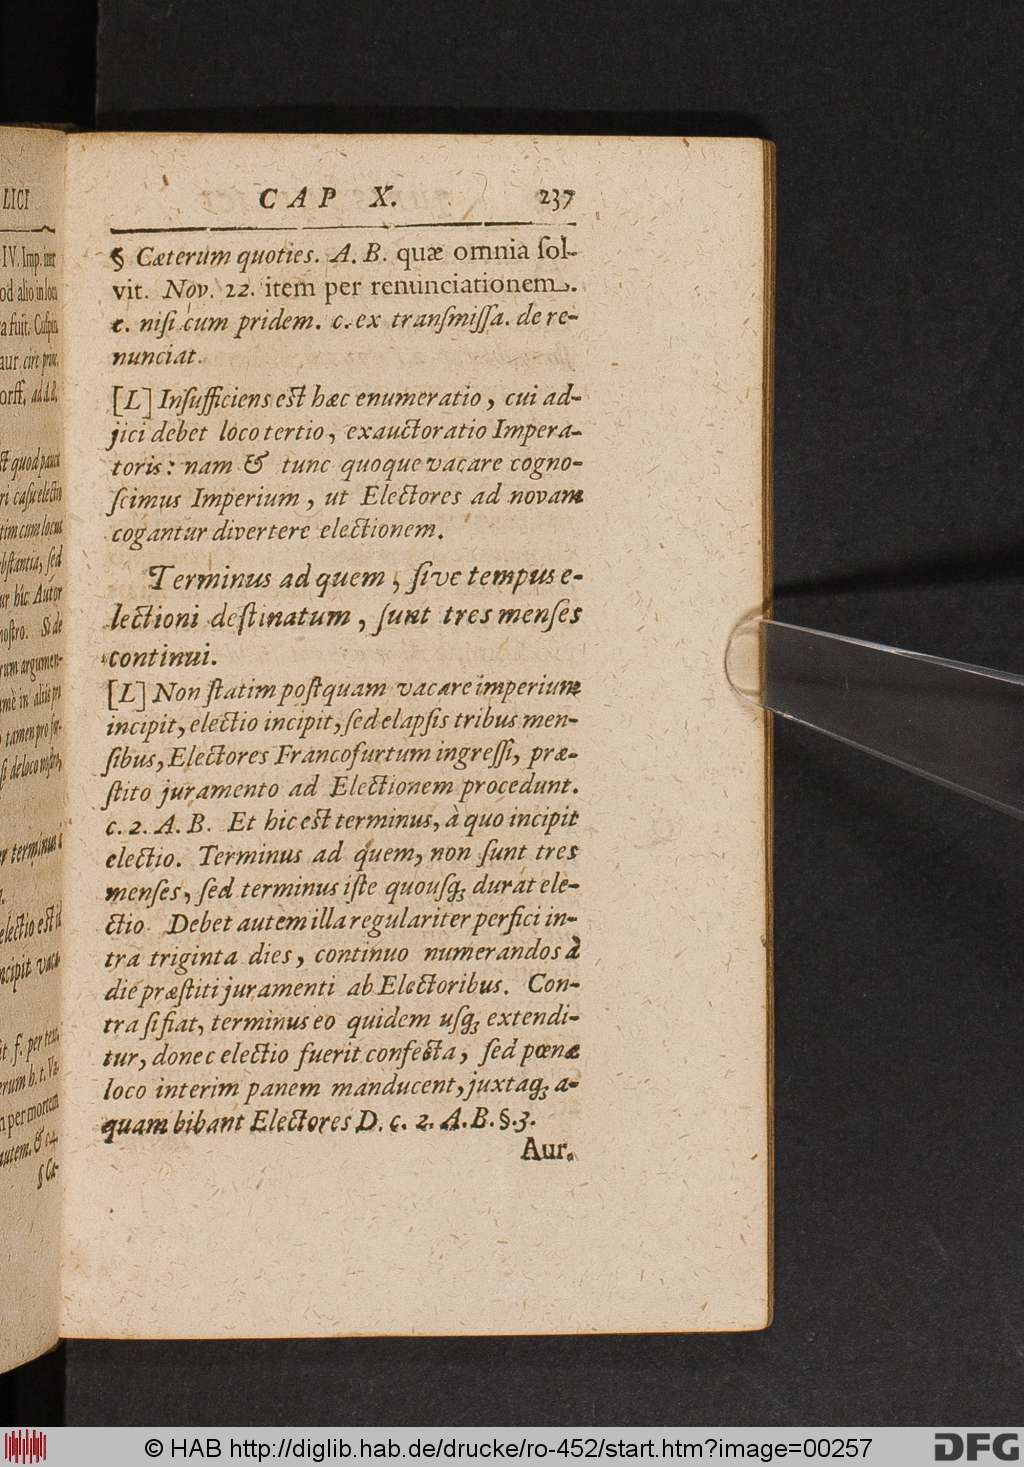 CAP X. 237
§ Cæterum quoties. A. B. quæ omnia ſol-
vit. Nov. 22. item per renunciationem.
c. niſi cum pridem. c. ex tranſmiſſa. de re-
nunciat.
[L] Inſufficiens est hæc enumeratio, cui ad-
jici debet loco tertio, exauctoratio Impera-
toris: nam & tunc quoque vacare cogno-
ſcimus Imperium, ut Electores ad novam
cogantur divertere electionem.
Terminus ad quem, ſive tempus e-
lectioni deſtinatum, ſunt tres menſes
continui.
[L] Non ſtatim poſtquam vacare imperium
incipit, electio incipit, ſed elapſis tribus men-
ſibus, Electores Francofurtum ingreſſi, præ-
ſtito juramento ad Electionem procedunt.
c. 2. A. B. Et hic est terminus, à quo incipit
electio. Terminus ad quem, non ſunt tres
menſes, ſed terminus iſte quouſq; durat ele-
ctio. Debet autem illa regulariter perfici in-
tra triginta dies, continuo numerandos à
die præſtiti juramenti ab Electoribus. Con-
tra ſi fiat, terminus eo quidem uſq; extendi-
tur, donec electio fuerit confecta, ſed pœnæ
loco interim panem manducent, juxtaq; a-
quam bibant Electores D. c. 2. A. B. §. 3.
Aur.
LICI
IV. Imp.
od alio in loco
ra fuit.
orff. ad A.B.
st quod
tim cum
bſtantia, ſed
ur hic Autor
noſtro. Si de
rum argumen-
mè in alius
tamen pro
ſi de loco noſtro,
er terminus à
electio est
incipit
it ſ. per
erum h. t.
per mortem
autem. & c. 4.
§ Cæ-
© HAB http://diglib.hab.de/drucke/ro-452/start.htm?image=00257
DFG